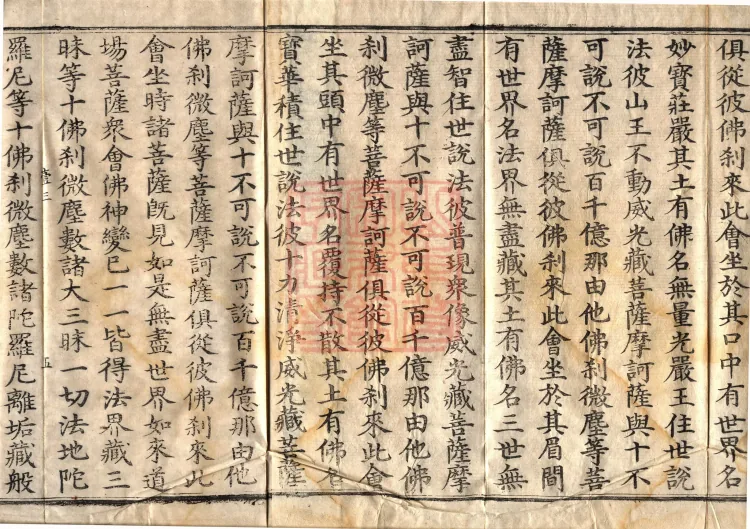 俱從彼佛刹來此會坐於其口中有世界名
妙寶莊嚴其土有佛名無量光嚴王住世說
法彼山王不動威光藏菩薩摩訶薩與十不
可說不可說百千億那由他佛刹微塵等菩
薩摩訶薩俱從彼佛刹來此會坐於其眉間
有世界名法界無盡藏其土有佛名三世無
盡智住世說法彼普現衆像威光藏菩薩摩
訶薩與十不可說不可說百千億那由他佛
刹微塵等菩薩摩訶薩俱從彼佛刹來此會
坐其頭中有世界名覆持不散其土有佛名
寶華積住世說法彼十力清淨威光藏菩薩
摩訶薩與十不可說不可說百千億那由他
佛刹微塵等菩薩摩訶薩俱從彼佛刹來此
會坐時諸菩薩旣見如是無盡世界如來道
場菩薩衆會佛神變已一一皆得法界藏三
昧等十佛刹微塵數諸大三昧一切法地陀
羅尼等十佛刹微塵數諸陀羅尼離垢藏般
五